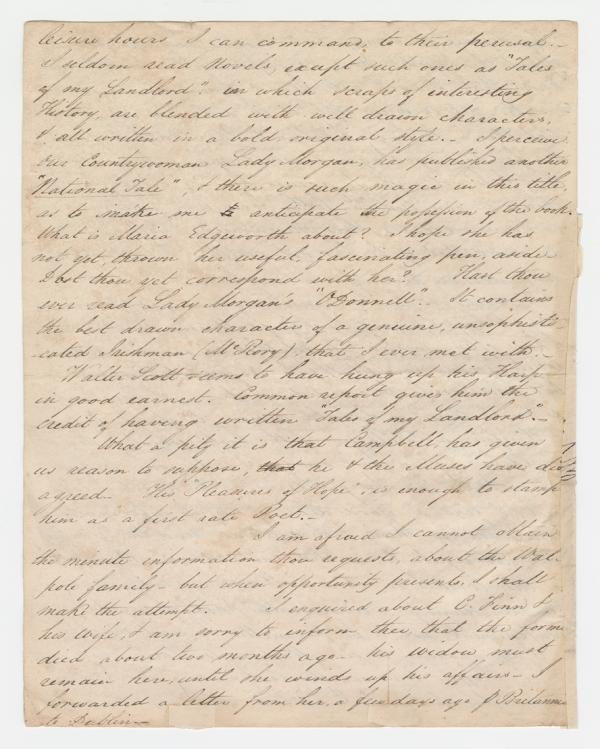 leisure hours I can command, to their perusal.—
I seldom read Novels, except such ones as "Tales
of my Landlord" in which scraps of interesting
History, are blended with well drawn characters,
& all written in a bold original style.— I perceive
our Countrywoman Lady Morgan, has published another
"National Tale", & there is such magic in this title,
as to make me to anticipate the possession of the book.
What is Maria Edgeworth about? I hope she has
not yet thrown her useful, fascinating pen, aside
Dost thou yet correspond with her? Hast thou
ever read Lady Morgan's "O'Donnell".— It contains
the best drawn character of a genuine, unsophisti-
-cated Irishman (McRory), that I ever met with.—
Walter Scott seems to have hung up his Harp
in good earnest. Common report gives him the
credit of having written "Tales of my Landlord".—
What a pity it is that Campbell has given
us reason to suppose, that he & the Muses have dis
agreed— His "Pleasures of Hope", is enough to stamp
him as a first rate Poet.—
I am afraid I cannot obtain
the minute information thou requests, about the Wal-
pole family— but when opportunity presents, I shall
make the attempt. I enquired about C. Finn &
his wife, & am sorry to inform thee, that the former
died about two months ago— his widow must
remain here, until she winds up his affairs— I
forwarded a letter from her, a few days ago P Britannia
to Dublin—